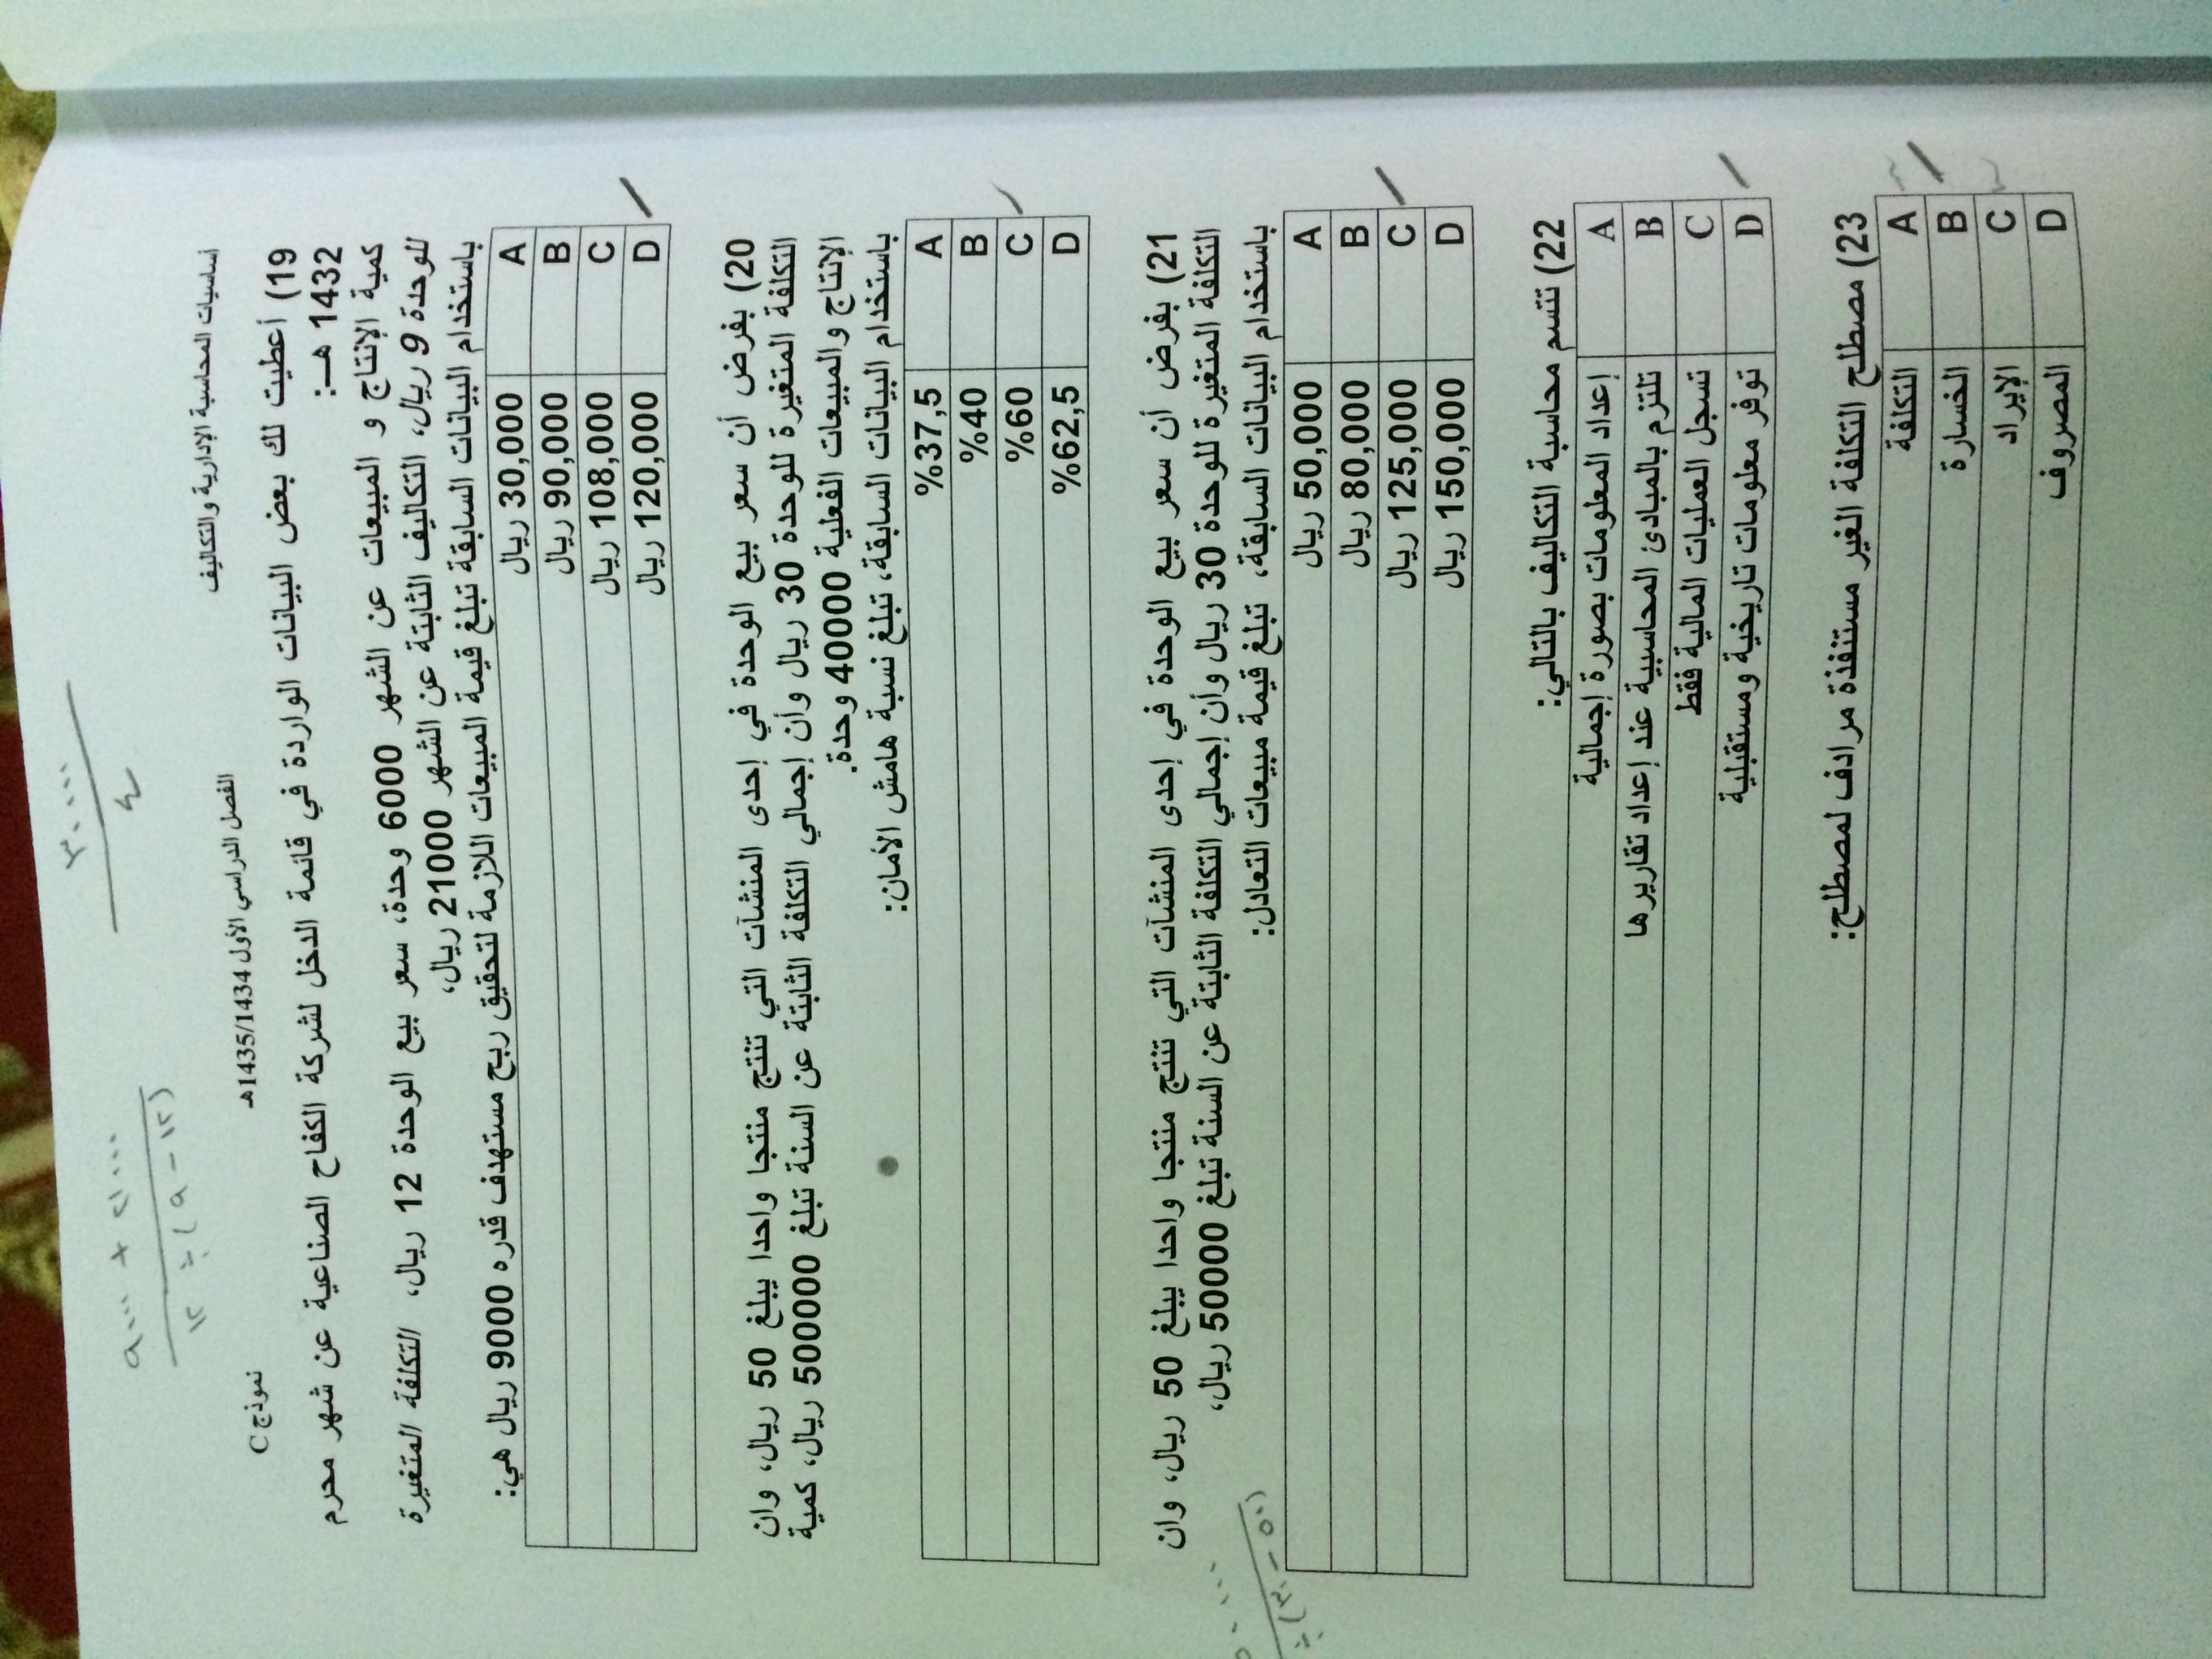 ٣٠٠٠٠
٤
٩٠٠٠ + ٢١٠٠٠
١٢ ÷ (٩ - ١٢)
اساسيات المحاسبة الإدارية والتكاليف
الفصل الدراسي الأول 1435/1434هـ
نموذج C
19) أعطيت لك بعض البيانات الواردة في قائمة الدخل لشركة الكفاح الصناعية عن شهر محرم
1432 هـ:
كمية الإنتاج و المبيعات عن الشهر 6000 وحدة، سعر بيع الوحدة 12 ريال، التكلفة المتغيرة
للوحدة 9 ريال، التكاليف الثابتة عن الشهر 21000 ريال،
باستخدام البيانات السابقة تبلغ قيمة المبيعات اللازمة لتحقيق ربح مستهدف قدره 9000 ريال هي:
A 30,000 ريال
B 90,000 ريال
C 108,000 ريال
D 120,000 ريال
20) بفرض أن سعر بيع الوحدة في إحدى المنشآت التي تنتج منتجا واحدا يبلغ 50 ريال، وان
التكلفة المتغيرة للوحدة 30 ريال وأن إجمالي التكلفة الثابتة عن السنة تبلغ 500000 ريال، كمية
الإنتاج والمبيعات الفعلية 40000 وحدة.
باستخدام البيانات السابقة، تبلغ نسبة هامش الأمان:
A %37,5
B %40
C %60
D %62,5
21) بفرض أن سعر بيع الوحدة في إحدى المنشآت التي تنتج منتجا واحدا يبلغ 50 ريال، وان
التكلفة المتغيرة للوحدة 30 ريال وأن إجمالي التكلفة الثابتة عن السنة تبلغ 50000 ريال،
باستخدام البيانات السابقة، تبلغ قيمة مبيعات التعادل:
A 50,000 ريال
B 80,000 ريال
C 125,000 ريال
D 150,000 ريال
÷ (٣٠ - ٥٠)
22) تتسم محاسبة التكاليف بالتالي:
A إعداد المعلومات بصورة إجمالية
B تلتزم بالمبادئ المحاسبية عند إعداد تقاريرها
C تسجل العمليات المالية فقط
D توفر معلومات تاريخية ومستقبلية
23) مصطلح التكلفة الغير مستنفذة مرادف لمصطلح:
A التكلفة
B الخسارة
C الإيراد
D المصروف